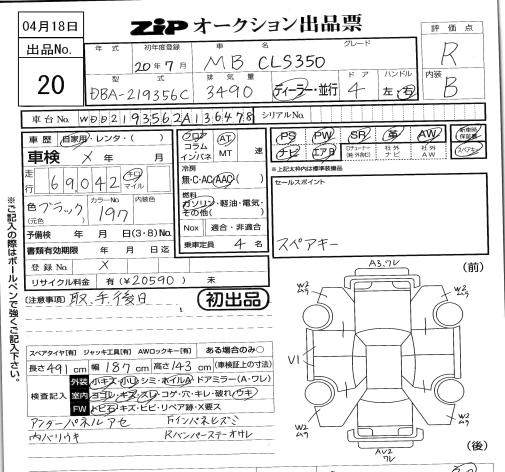 04月18日
ZIP オークション出品票
評価点
R
出品No.
20
年式
初年度登録
車名
グレード
20年7月
MB CLS350
型式
排気量
ドア
ハンドル
DBA-219356C
3490
ディーラー・並行
4
左・右
内装
B
車台No.
WDD2193562A136478
シリアルNo.
車歴
自家用・レンタ・( )
車検 × 年 月
走行
69,042
キロ
マイル
色
(元色)
ブラック
カラーNo.
197
内装色
予備検 年 月 日(3・8)No.
書類有効期限 年 月 日迄
登録No. ×
リサイクル料金 有(¥20590) 未
(注意事項) 取、手後日
フロア
コラム
インパネ
AT
MT
速
冷房
無・C・AC・AAC( )
燃料
ガソリン・軽油・電気・
その他( )
Nox 適合・非適合
乗車定員 4名
初出品
PS PW SR 革 AW
新車時保証書
ナビ エアB
社外ナビ
社外AW
スペアキー
※上記太枠内は標準装備品
セールスポイント
スペアキー
※ご記入の際はボールペンで強くご記入下さい。
スペアタイヤ[有] ジャッキ工具[有] AWロックキー[有] ある場合のみ○
長さ491cm 幅187cm 高さ143cm (車検証上の寸法)
検査記入
外装 小キズ・小凹・シミ・ホイルA・ドアミラー(A・ワレ)
室内 ヨゴレ・キズ・スレ・コゲ・穴・キレ・破れ・ウキ
FW トビ石・キズ・ヒビ・リペア跡・X要ス
アンダーパネル アセ
Fインパネヒズミ
内バリウキ
Rバンパーステーオサレ
(前)
A3.ワレ
W2
ムラ
W2
ムラ
V1
W2
ムラ
W2
ムラ
AV2
ワレ
(後)